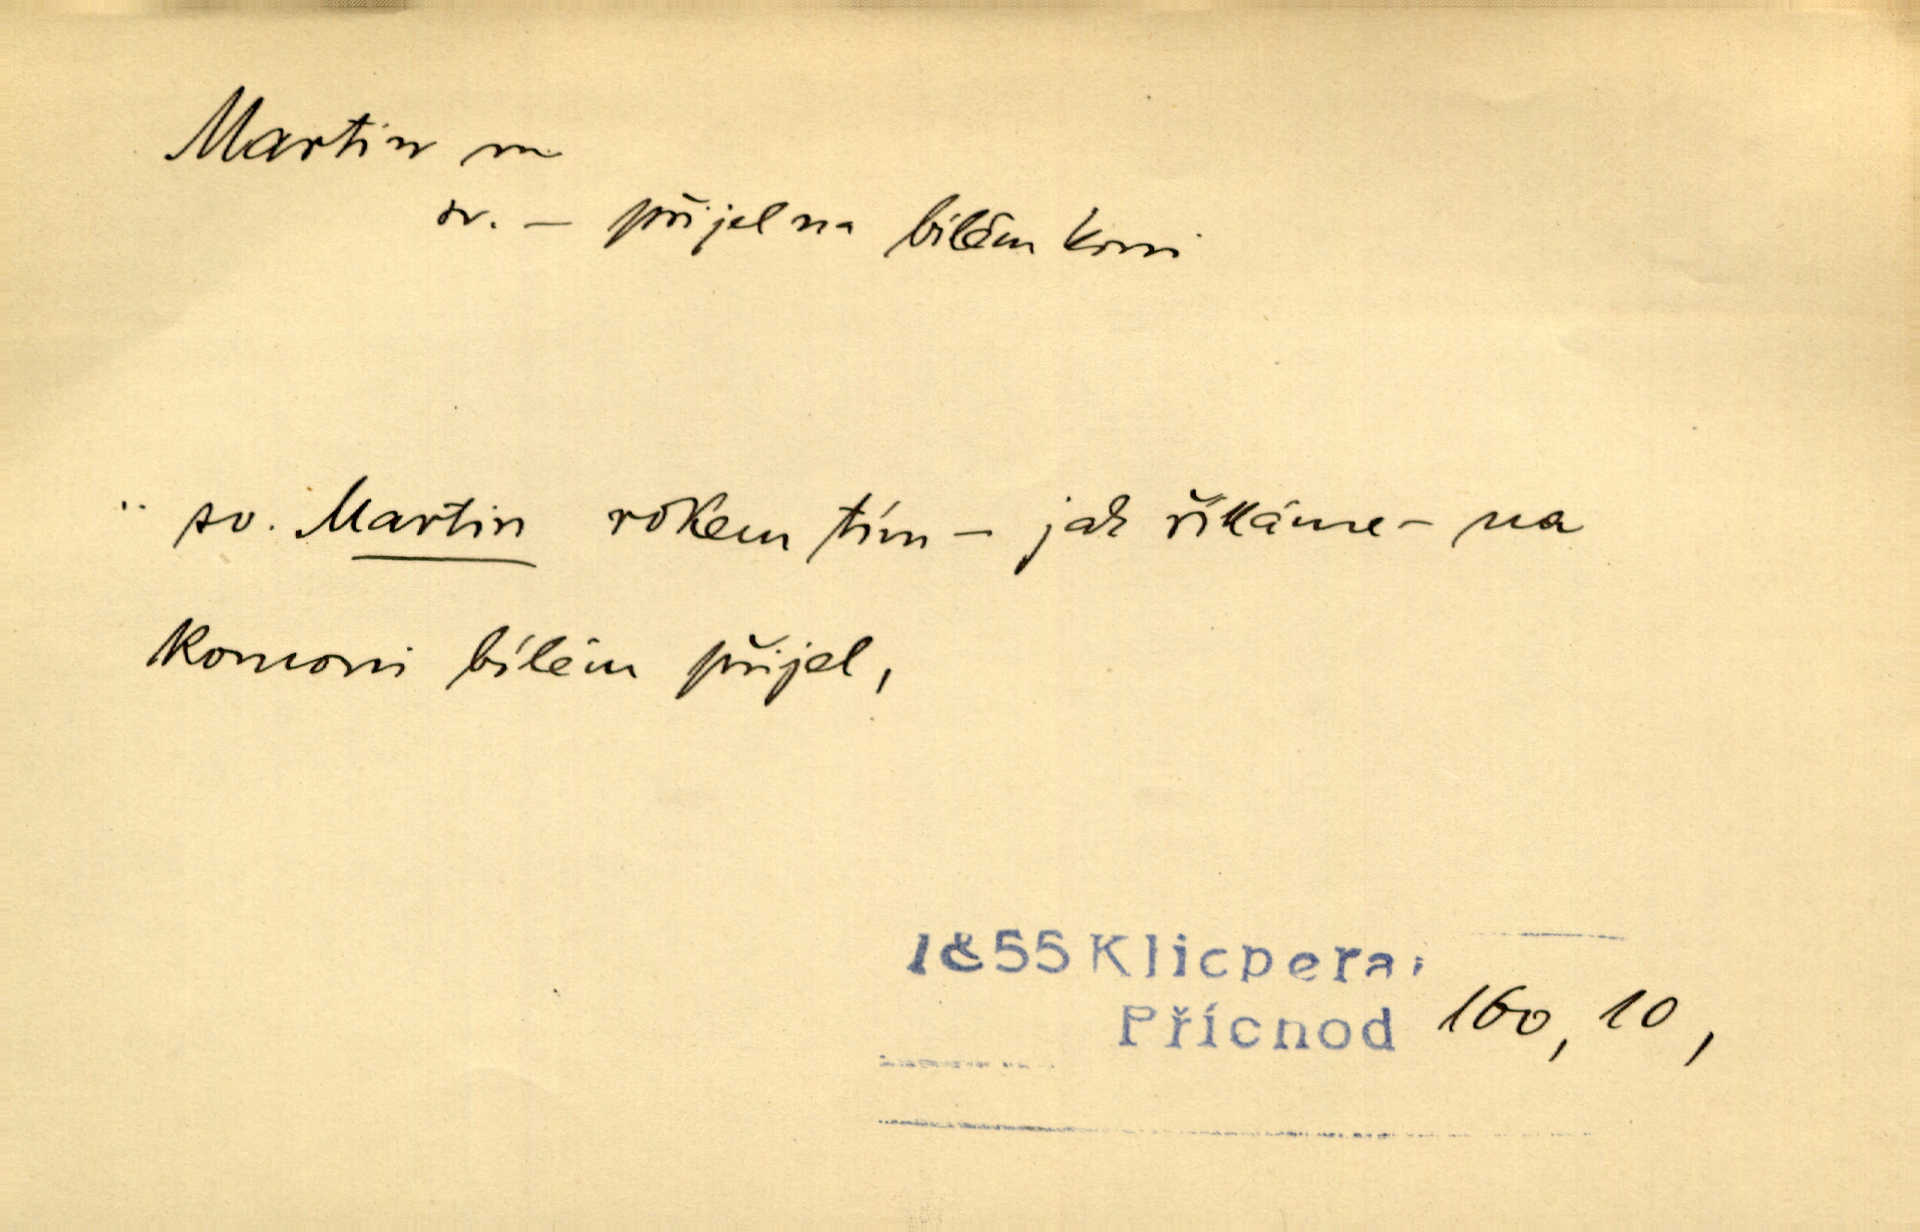 Martin m
sv. – přijel na bílém koni
.. sv. Martin rokem tím – jak říkáme – na
komoni bílém přijel,
1855 Klicpera,
Přícnod 160, 10,